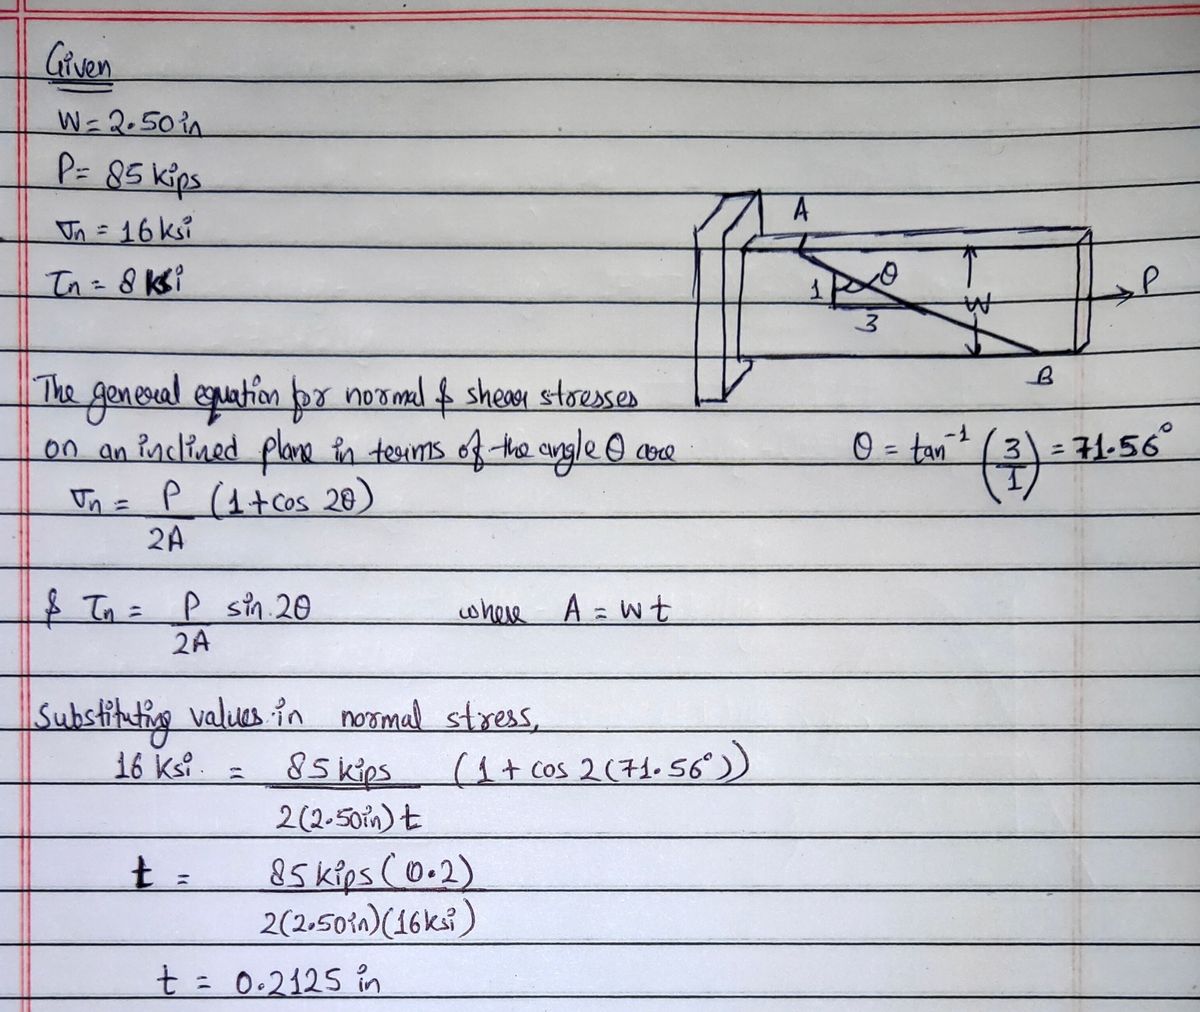 Given
W = 2.50 in
P = 85 kips
σn = 16 ksi
τn = 8 ksi
A
θ
1
3
W
P
B
The general equation for normal & shear stresses
on an inclined plane in terms of the angle θ are
θ = tan⁻¹ (3/1) = 71.56°
σn = P/2A (1 + cos 2θ)
& τn = P/2A sin 2θ where A = wt
Substituting values in normal stress,
16 ksi = 85 kips/2(2.50in)t (1 + cos 2(71.56°))
t = 85 kips (0.2)/2(2.50in)(16ksi)
t = 0.2125 in